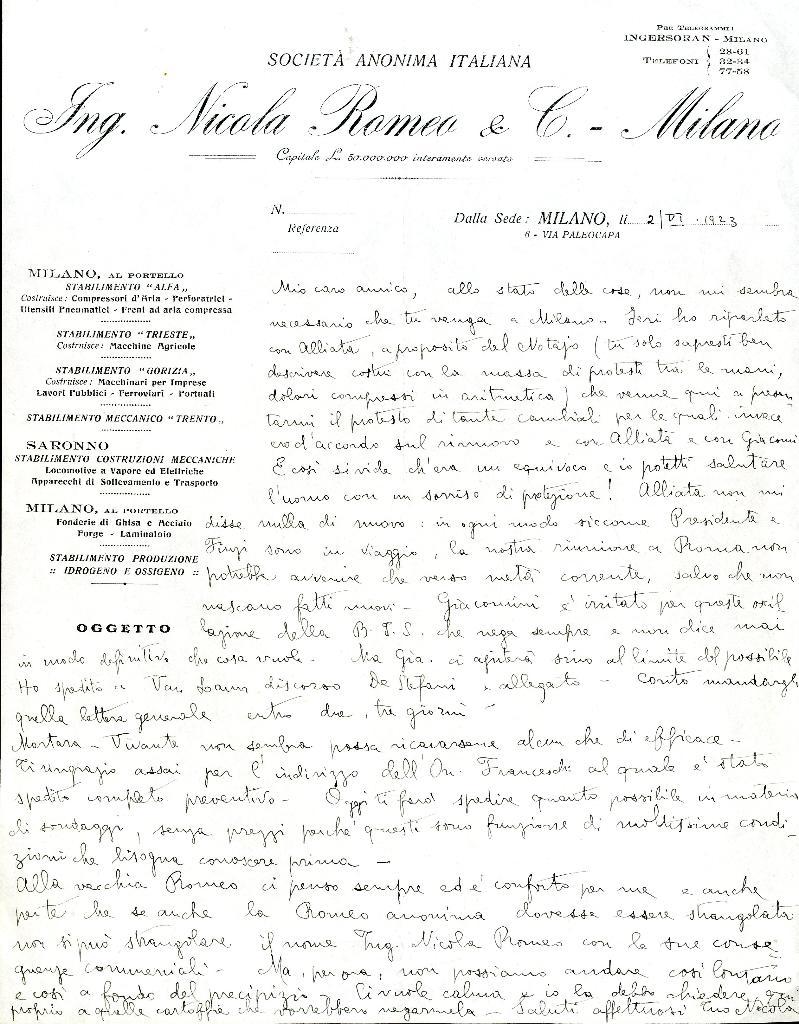 Per Telegrammi:
INGERSORAN - MILANO
TELEFONI { 28-61
32-84
77-58
SOCIETÀ ANONIMA ITALIANA
Ing. Nicola Romeo & C. - Milano
Capitale L. 50.000.000 interamente versato
N.
Referenza
Dalla Sede: MILANO, li 2/VI.1923
6 - VIA PALEOCAPA
MILANO, AL PORTELLO
STABILIMENTO "ALFA„
Costruisce: Compressori d'Aria - Perforatrici -
Utensili Pneumatici - Freni ad aria compressa
STABILIMENTO "TRIESTE„
Costruisce: Macchine Agricole
STABILIMENTO "GORIZIA„
Costruisce: Macchinari per Imprese
Lavori Pubblici - Ferroviari - Portuali
STABILIMENTO MECCANICO "TRENTO„
SARONNO
STABILIMENTO COSTRUZIONI MECCANICHE
Locomotive a Vapore ed Elettriche
Apparecchi di Sollevamento e Trasporto
MILANO, AL PORTELLO
Fonderie di Ghisa e Acciaio
Forge - Laminatoio
STABILIMENTO PRODUZIONE
:: IDROGENO E OSSIGENO ::
OGGETTO
Mio caro amico, allo stato delle cose, non mi sembra
necessario che tu venga a Milano. Ieri ho riparlato
con Alliata, a proposito del Notajo (tu solo sapresti ben
descrivere costui con la massa di protesti tra le mani,
dolori compressi in aritmetica) che venne qui a presen
tarmi il protesto di tante cambiali per le quali invece
ero d'accordo sul rinnovo e con Alliata e con Giacomi
E così si vide ch'era un equivoco e io potetti salutare
l'uomo con un sorriso di protezione! Alliata non mi
disse nulla di nuovo: in ogni modo siccome Presidente e
sono in viaggio, la nostra riunione a Roma non
potrebbe avvenire che verso metà corrente, salvo che non
nascano fatti nuovi - Giacomini è irritato per queste oscil
lazione della B.I.S. che nega sempre e non dice mai
in modo definitivo che cosa vuole. Ma Gia. ci ajuterà sino al limite del possibile
Ho spedito a Van Laun discorso De Stefani, allegato - Conto mandargli
quella lettera generale entro due, tre giorni -
Mortara - Vivante non sembra possa ricavarsene alcun che di efficace -
Ti ringrazio assai per l'indirizzo dell'On. Franceschi al quale è stato
spedito completo preventivo - Oggi ti farò spedire quanto possibile in materia
di sondaggi, senza prezzi perché questi sono funzione di moltissime condi-
zioni che bisogna conoscere prima -
Alla vecchia Romeo ci penso sempre ed è conforto per me e anche
per te che se anche la Romeo anonima dovesse essere strangolata
non si può strangolare il nome Ing. Nicola Romeo con le sue conse
guenze commerciali - Ma, per ora, non possiamo andare così lontano
e così a fondo del precipizio. Ci vuole calma e io la debbo chiedere
proprio a quelle cartoffie che vorrebbero negarmela - Saluti affettuosi tuo Nicola